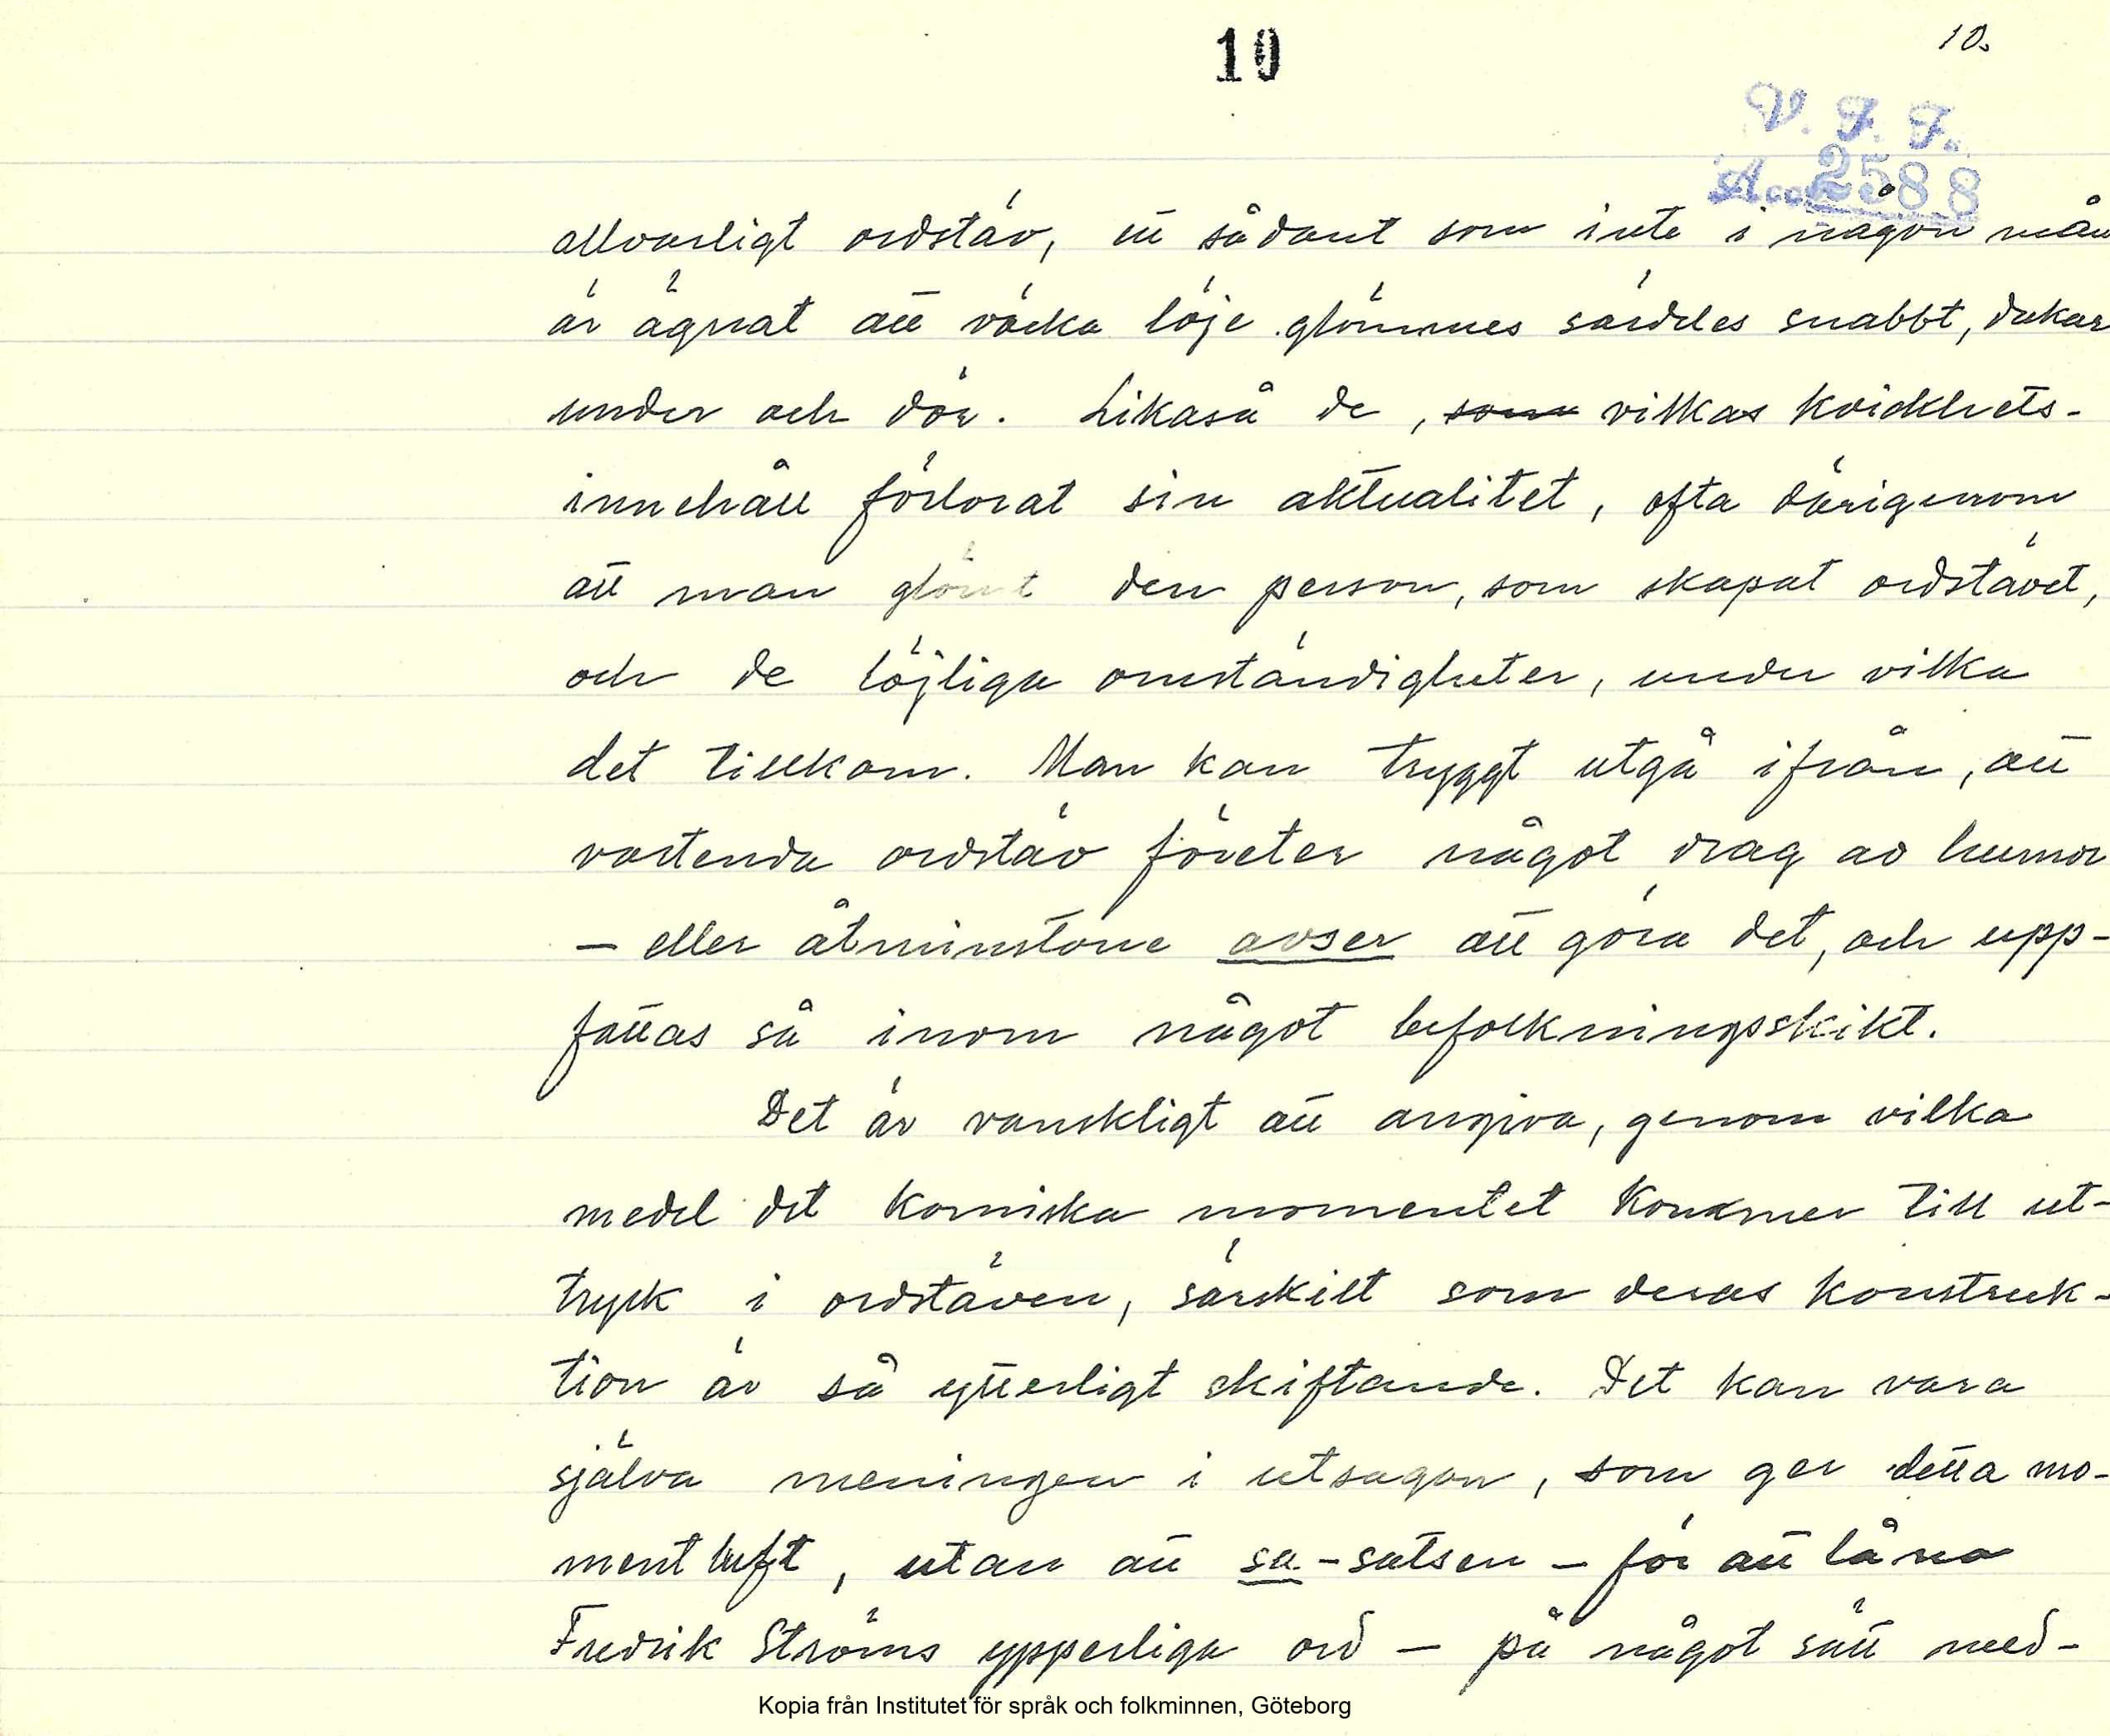 10
10.
V. F. F.
Acc. 2588
allvarligt ordstäv, ett sådant som inte i någon mån
är ägnat att väcka löje glömmes särdeles snabbt, dukar
under och dör. Likaså de, som vilkas kvickhets-
innehåll förlorat sin aktualitet, ofta därigenom
att man glömt den person, som skapat ordstävet,
och de löjliga omständigheter, under vilka
det tillkom. Man kan tryggt utgå ifrån, att
vartenda ordstäv företer något drag av humor
– eller åtminstone avser att göra det, och upp-
fattas så inom något befolkningsskikt.
Det är vanskligt att angiva, genom vilka
medel det komiska momentet kommer till ut-
tryck i ordstäven, särskilt som deras konstruk-
tion är så ytterligt skiftande. Det kan vara
själva meningen i utsagan, som ger detta mo-
ment luft, utan att sa-satsen – för att låna
Fredrik Ströms ypperliga ord – på något sätt med-
Kopia från Institutet för språk och folkminnen, Göteborg